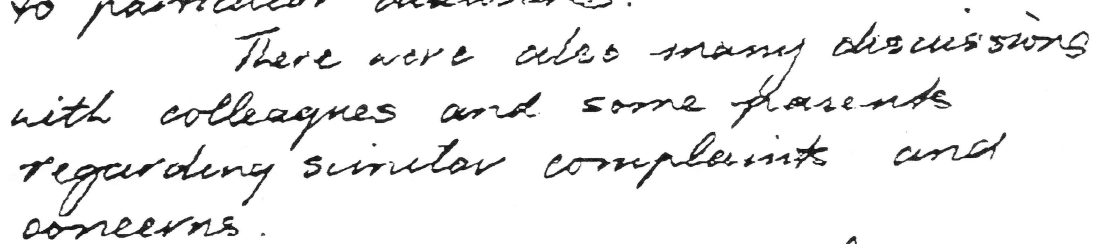 to particular
There were also many discussions
with colleagues and some parents
regarding similar complaints and
concerns.